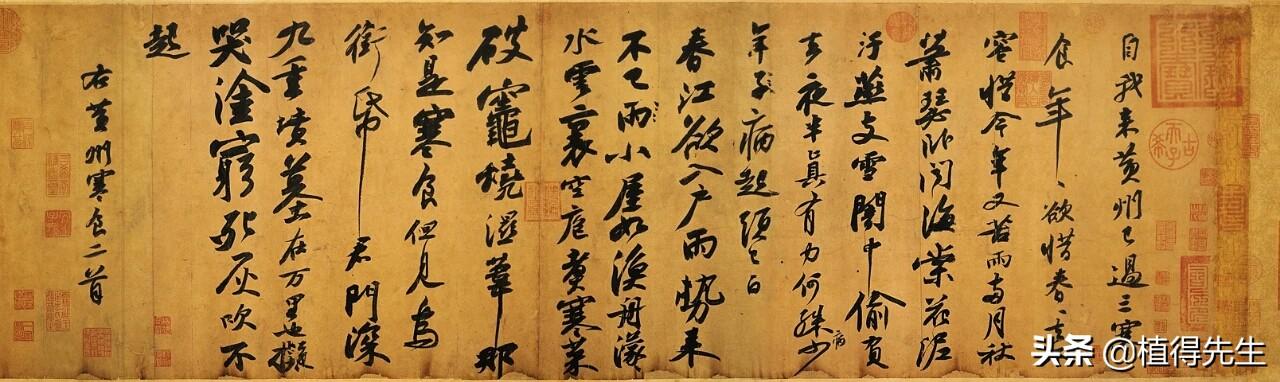 自我來黃州已過三寒
食年〻欲惜春〻去
容惜今年又苦雨兩月秋
蕭瑟臥聞海棠花泥
汙燕支雪闇中偷負
去夜半真有力何殊少
病
年子病起須已白
春江欲入戶雨勢來
不已雨小屋如漁舟濛〻
水雲裏空庖煮寒菜
破竈燒濕葦那
知是寒食但見烏
銜帋君門深
九重墳墓在万里也擬
哭塗窮死灰吹不
起
右黃州寒食二首
古希天子
头条 @植得先生